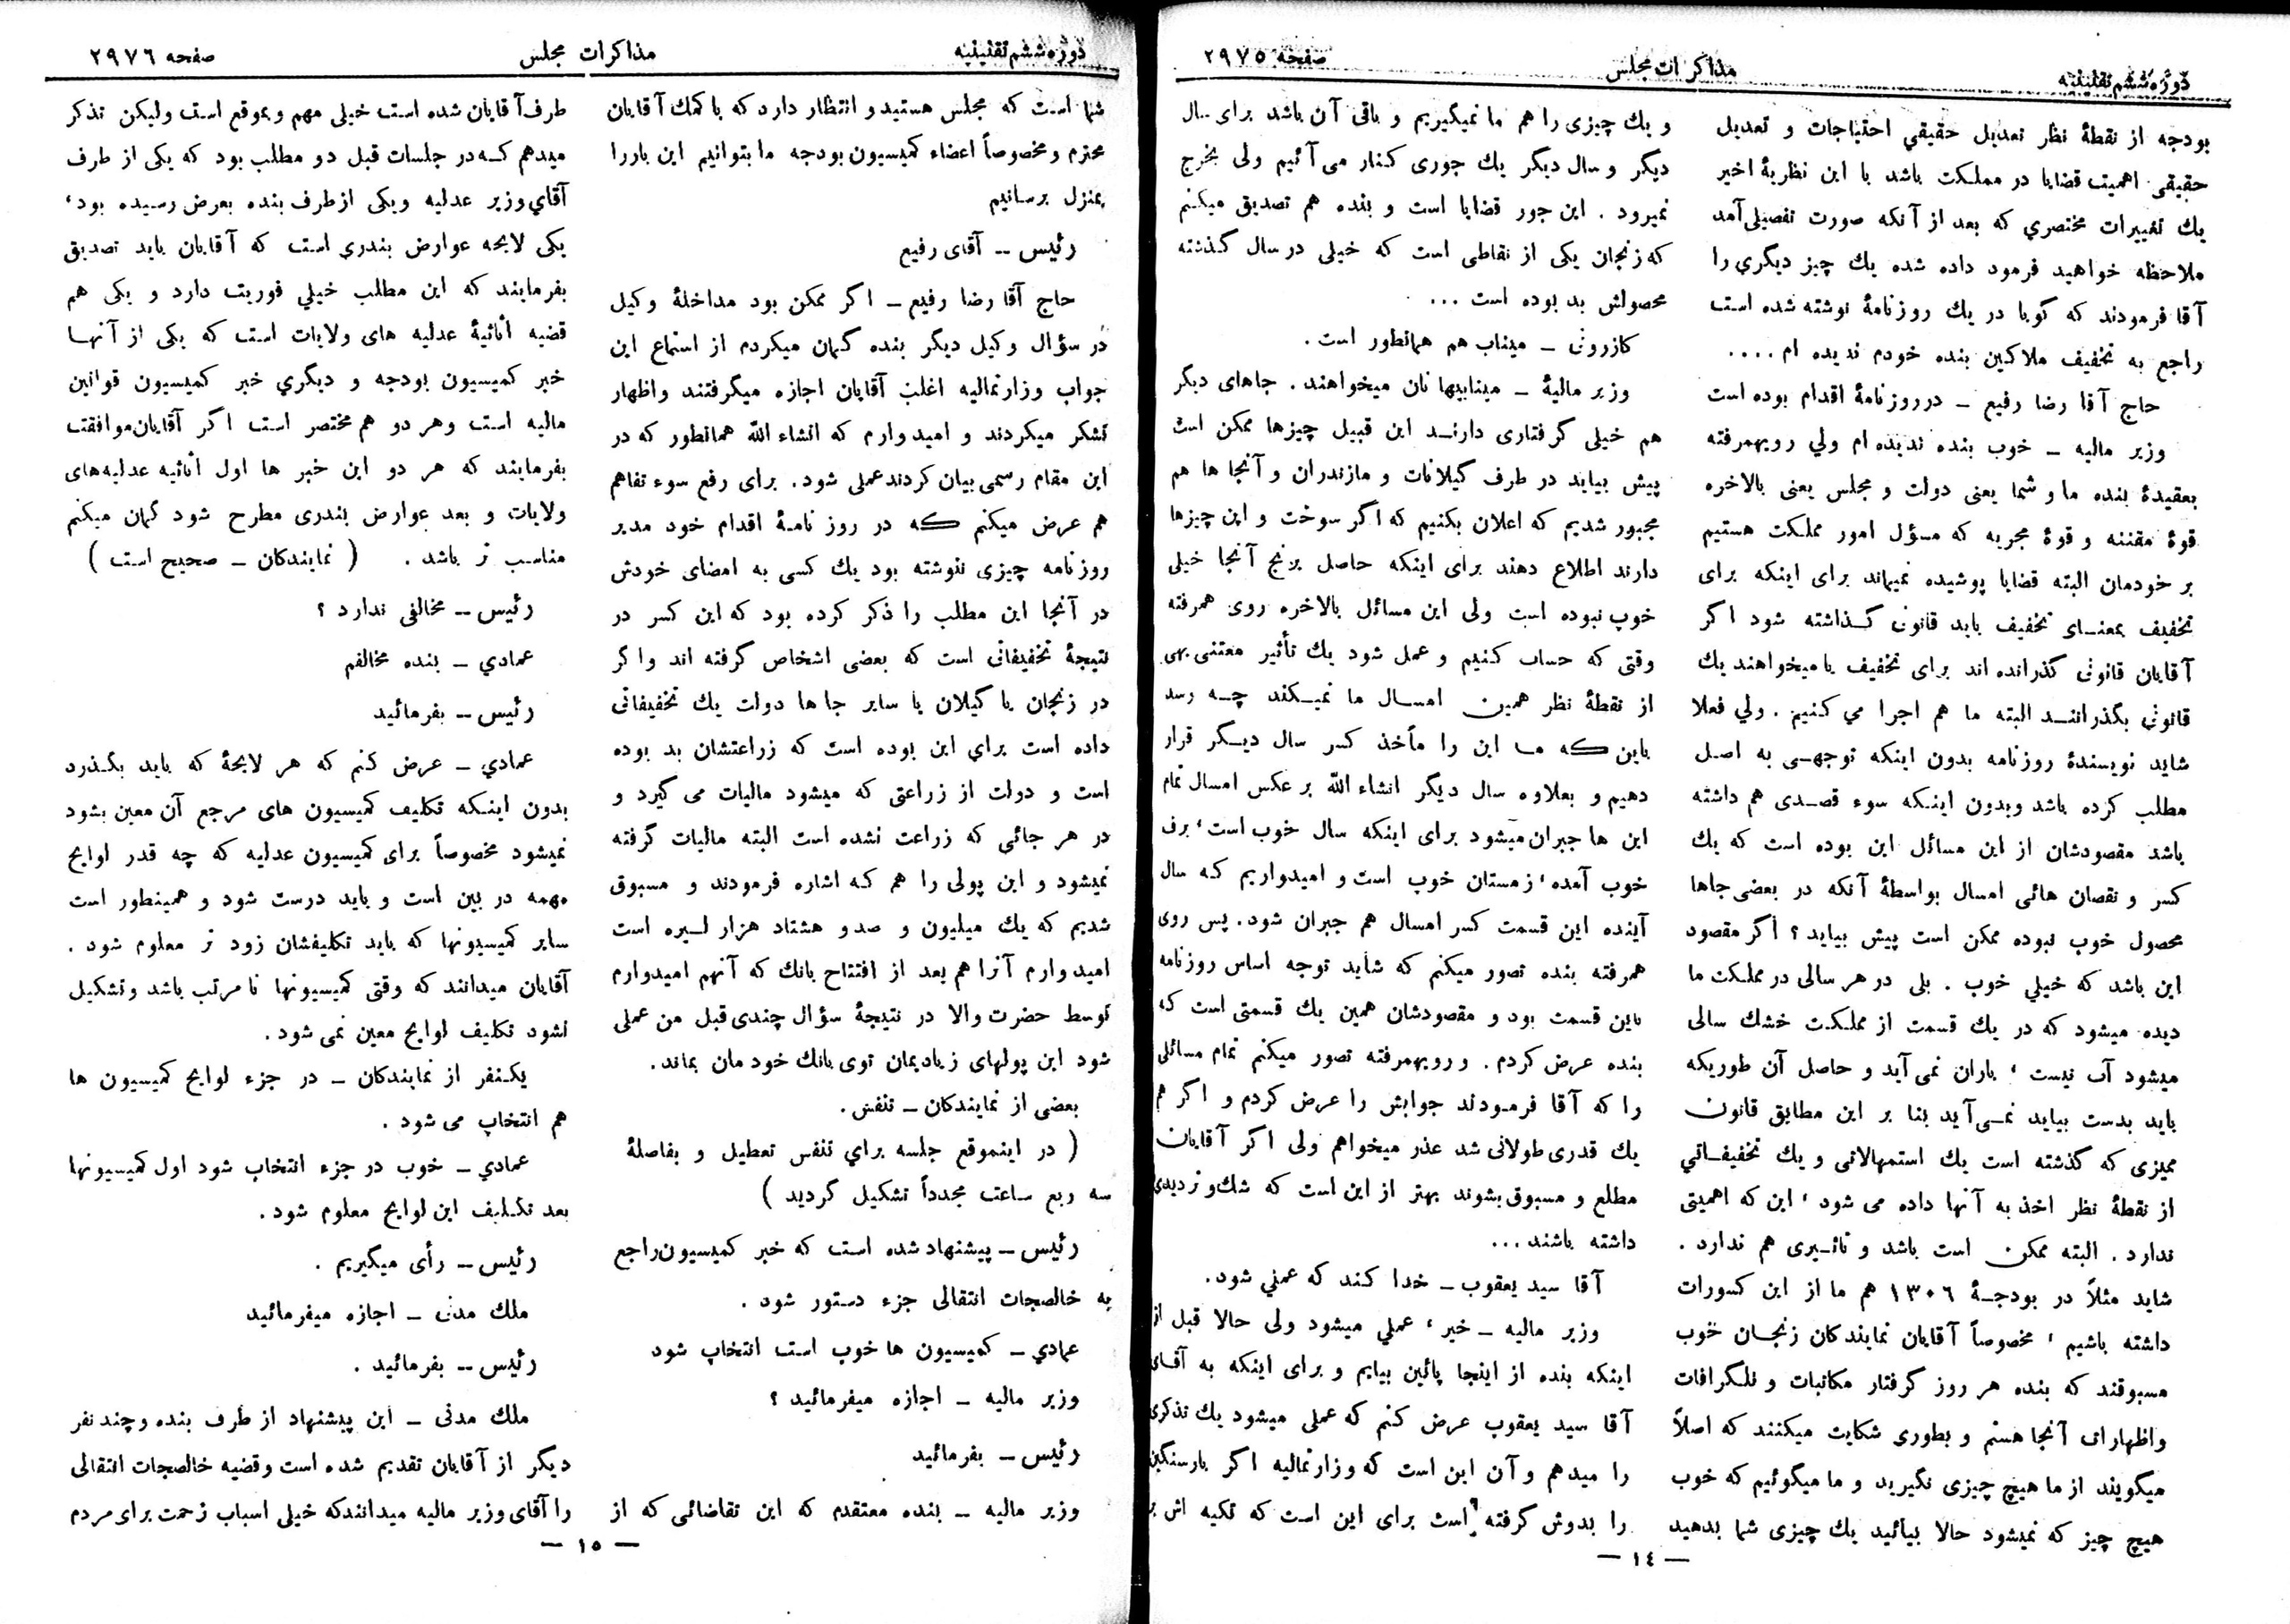 دوره ششم تقنینیه
مذاکرات مجلس
صفحه ۲۹۷۵
بودجه از نقطهٔ نظر تعدیل حقیقي احتیاجات و تعدیل
حقیقي اهمیت قضایا در مملکت باشد با این نظریهٔ اخیر
یك تغییرات مختصري که بعد از آنکه صورت تفصیلی آمد
ملاحظه خواهید فرمود داده شده یك چیز دیگري را
آقا فرمودند که گویا در یك روزنامهٔ نوشته شده است
راجع به تخفیف ملاکین بنده خودم ندیده ام ....
حاج آقا رضا رفیع ــ در روزنامهٔ اقدام بوده است
وزیر مالیه ــ خوب بنده ندیده ام ولي رویهمرفته
بعقیدهٔ بنده ما و شما یعنی دولت و مجلس یعنی بالاخره
قوهٔ مقننه و قوهٔ مجریه که مسؤل امور مملکت هستیم
بر خودمان البته قضایا پوشیده نمیماند برای اینکه برای
تخفیف بمعنــای تخفیف باید قانونی گــذاشته شود اگر
آقایان قانونی گذرانده اند برای تخفیف یا میخواهند یك
قانونی بگذراننــد البته ما هم اجرا می کنیم . ولي فعلا
شاید نویسندهٔ روزنامه بدون اینکه توجهــی به اصـل
مطلب کرده باشد و بدون اینـکه سوء قصـدی هم داشته
باشد مقصودشان از این مسائل این بوده است که یك
کسر و نقصان هائی امسال بواسطهٔ آنکه در بعضی جاها
محصول خوب نبوده ممکن است پیش بیاید ؟ اگر مقصود
این باشد که خیلي خوب . بلی در هر سالی در مملکت ما
دیده میشود که در یك قسمت از مملکت خشك سالی
میشود آب نیست ، باران نمی آید و حاصل آن طوریکه
باید بدست بیاید نمــی آید بنا بر این مطابق قانون
ممیزی که گذشته است یك استمهالاتی و یك تخفیفــاتي
از نقطهٔ نظر اخذ به آنها داده می شود ، این که اهمیتی
ندارد . البته ممکن است باشد و تاثــیری هم ندارد .
شاید مثلاً در بودجــهٔ ۱۳۰۶ هم ما از این کسورات
داشته باشیم ، مخصوصاً آقایان نمایندکان زنجــان خوب
مسبوقند که بنده هر روز گرفتار مکاتبات و تلگرافات
و اظهارات آنجا هستم و بطوری شکایت میکنند که اصلاً
میگویند از ما هیچ چیزی نگیرید و ما میگوئیم که خوب
هیچ چیز که نمیشود حالا بیائید یك چیزی شما بدهید
و یك چیزی را هم ما نمیگیریم و باقی آن باشد برای سال
دیگر و سال دیگر یك جوری کنار می آئیم ولی بخرج
نمیرود . این جور قضایا است و بنده هم تصدیق میکنم
که زنجان یکی از نقاطی است که خیلی در سال گـذشته
محصولش بد بوده است ...
کازرونی ــ میناب هم همانطور است .
وزیر مالیهٔ ــ مینابیها نان میخواهند . جاهای دیگر
هم خیلی گرفتاری دارنــد این قبیل چیزها ممکن است
پیش بیاید در طرف گیلانات و مازندران و آنجا ها هم
مجبور شدیم که اعلان بکنیم که اگر سوخت و این چیزها
دارند اطلاع دهند برای اینکه حاصل برنج آنجا خیلی
خوب نبوده است ولی این مسائل بالاخره روی همرفته
وقتی که حساب کنیم و عمل شود یك تأثیر معتنی بهی
از نقطهٔ نظر همین امســال ما نمیــکند چــه رسد
باین که مــا این را مأخذ کسر سال دیــگر قرار
دهیم و بعلاوه سال دیگر انشاء الله بر عکس امسال تمام
این ها جبران میشود برای اینکه سال خوب است ، برف
خوب آمده ، زمستان خوب است و امیدواریم که سال
آینده این قسمت کسر امسال هم جبران شود . پس روی
همرفته بنده تصور میکنم که شاید توجه اساس روزنامه
باین قسمت بود و مقصودشان همین یك قسمتی است که
بنده عرض کردم . و رویهمرفته تصور میکنم تمام مسائلی
را که آقا فرمـودند جوابش را عرض کردم و اگر هم
یك قدری طولانی شد عذر میخواهم ولی اگر آقایان
مطلع و مسبوق بشوند بهتر از این است که شك و تردیدی
داشته باشند ...
آقا سید یعقوب ــ خدا کند که عملي شود .
وزیر مالیه ــ خیر ، عملي میشود ولی حالا قبل از
اینکه بنده از اینجا پائین بیایم و برای اینکه به آقای
آقا سید یعقوب عرض کنم که عملی میشود یك تذکری
را میدهم و آن این است که وزارتمالیه اگر بار سنگین
را بدوش گرفته است برای این است که تکیه اش بر
— ۱٤ —
دوره ششم تقنینیه
مذاکرات مجلس
صفحه ۲۹۷٦
شما است که مجلس هستید و انتظار دارد که با کمك آقایان
محترم و مخصوصاً اعضاء کمیسیون بودجه ما بتوانیم این بار را
بمنزل برسانیم
رئیس ــ آقای رفیع
حاج آقا رضا رفیع ــ اگر ممکن بود مداخلهٔ وکیل
در سؤال وکیل دیگر بنده گمان میکردم از استماع این
جواب وزارتمالیه اغلب آقایان اجازه میگرفتند و اظهار
تشکر میکردند و امیدوارم که انشاء الله همانطور که در
این مقام رسمی بیان کردند عملی شود . برای رفع سوء تفاهم
هم عرض میکنم که در روز نامــهٔ اقدام خود مدیر
روزنامه چیزی ننوشته بود یك کسی به امضای خودش
در آنجا این مطلب را ذکر کرده بود که این کسر در
نتیجهٔ تخفیفاتی است که بعضی اشخاص گرفته اند و اگر
در زنجان یا گیلان یا سایر جا ها دولت یك تخفیفاتی
داده است براي این بوده است که زراعتشان بد بوده
است و دولت از زراعتی که میشود مالیات می گیرد و
در هر جائی که زراعت نشده است البته مالیات گرفته
نمیشود و این پولی را هم که اشاره فرمودند و مسبوق
شدیم که یك میلیون و صد و هشتاد هزار لیره است
امیدوارم آنرا هم بعد از افتتاح بانك که آنهم امیدوارم
توسط حضرت والا در نتیجهٔ سؤال چندی قبل من عملی
شود این پولهای زیادیمان توی بانك خودمان بماند .
بعضی از نمایندکان ــ تنفس .
( در اینموقع جلسه براي تنفس تعطیل و بفاصلهٔ
سه ربع ساعت مجدداً تشکیل گردید )
رئیس ــ پیشنهاد شده است که خبر کمیسیون راجع
به خالصجات انتقالی جزء دستور شود .
عمادي ــ کمیسیون ها خوب است انتخاب شود
وزیر مالیه ــ اجازه میفرمائید ؟
رئیس ــ بفرمائید
وزیر مالیه ــ بنده معتقدم که این تقاضائی که از
طرف آقایان شده است خیلی مهم و بموقع است ولیکن تذکر
میدهم کــه در جلسات قبل دو مطلب بود که یکی از طرف
آقاي وزیر عدلیه و یکی از طرف بنده بعرض رسیده بود ،
یکی لایحه عوارض بندري است که آقایان باید تصدیق
بفرمایند که این مطلب خیلي فوریت دارد و یکی هم
قضیه أثاثیهٔ عدلیه های ولایات است که یکی از آنهــا
خبر کمیسیون بودجه و دیگري خبر کمیسیون قوانین
مالیه است و هر دو هم مختصر است اگر آقایان موافقت
بفرمایند که هر دو این خبر ها اول أثاثیه عدلیه های
ولایات و بعد عوارض بندری مطرح شود گمان میکنم
مناسب تر باشد . ( نمایندکان ــ صحیح است )
رئیس ــ مخالفی ندارد ؟
عمادي ــ بنده مخالفم
رئیس ــ بفرمائید
عمادي ــ عرض کنم که هر لایحهٔ که باید بگـذرد
بدون اینـکه تکلیف کمیسیون های مرجع آن معین بشود
نمیشود مخصوصاً برای کمیسیون عدلیه که چه قدر لوایح
مهمه در بین است و باید درست شود و همینطور است
سایر کمیسیونها که باید تکلیفشان زود تر معلوم شود .
آقایان میدانند که وقتی کمیسیونها نا مرتب باشد و تشکیل
نشود تکلیف لوایح معین نمی شود .
یکنفر از نمایندکان ــ در جزء لوایح کمیسیون ها
هم انتخاب می شود .
عمادي ــ خوب در جزء انتخاب شود اول کمیسیونها
بعد تکلیف این لوایح معلوم شود .
رئیس ــ رأی میگیریم .
ملك مدنی ــ اجازه میفرمائید
رئیس ــ بفرمائید .
ملك مدنی ــ این پیشنهاد از طرف بنده و چند نفر
دیگر از آقایان تقدیم شده است و قضیه خالصجات انتقالی
را آقای وزیر مالیه میدانند که خیلی اسباب زحمت برای مردم
— ۱٥ —